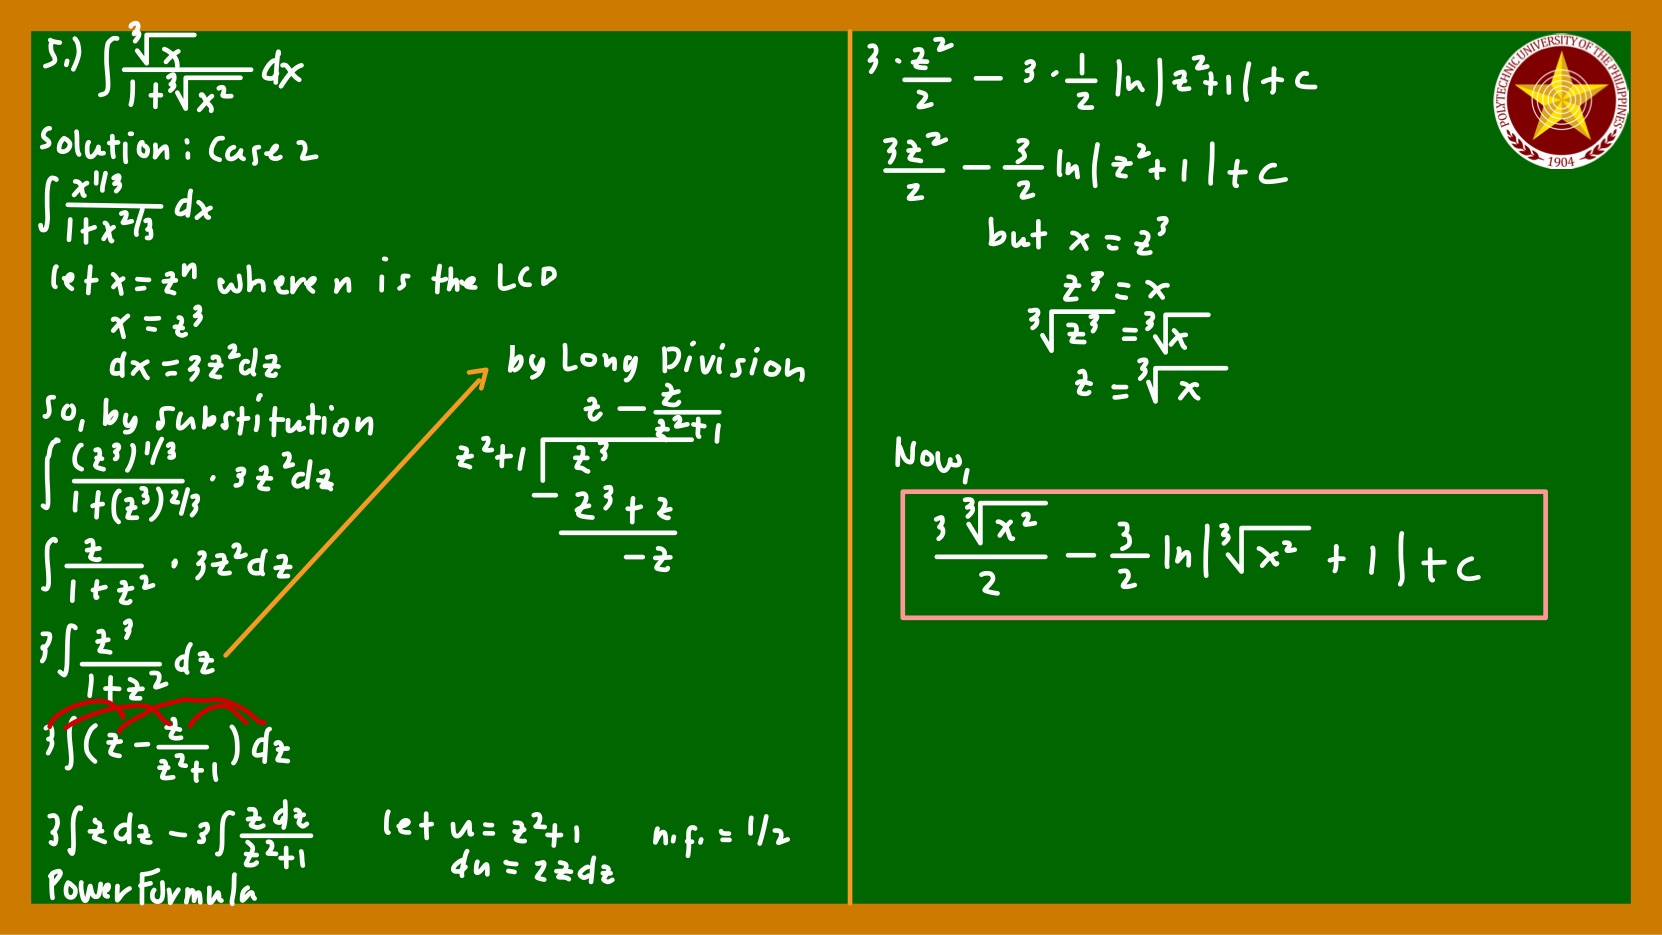 5.) ∫ ∛x / (1+∛x²) dx
Solution: Case 2
∫ x^1/3 / (1+x^2/3) dx
let x = zⁿ where n is the LCD
x = z³
dx = 3z²dz
So, by substitution
∫ (z³)^1/3 / (1+(z³)^2/3) · 3z²dz
∫ z / (1+z²) · 3z²dz
3∫ z³ / (1+z²) dz
3∫(z - z/(z²+1)) dz
3∫zdz - 3∫ zdz / (z²+1)
Power Formula
by Long Division
z - z/(z²+1)
z²+1 z³
- z³+z
-z
let u = z²+1
du = 2zdz
n.f. = 1/2
3 · z²/2 - 3 · 1/2 ln|z²+1| + c
3z²/2 - 3/2 ln|z²+1| + c
but x = z³
z³ = x
∛z³ = ∛x
z = ∛x
Now,
3∛x² / 2 - 3/2 ln|∛x² + 1| + c
POLYTECHNIC UNIVERSITY OF THE PHILIPPINES
1904